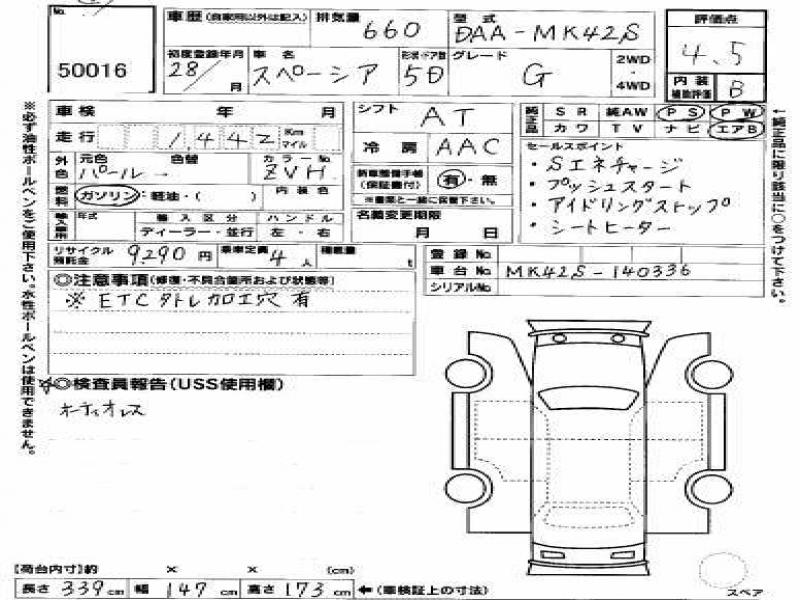 No.
50016
車歴(自家用以外は記入) 排気量 660 型式 DAA-MK42S
初度登録年月 28/ 月 車名 スペーシア 形状・ドア数 5D グレード G 2WD・4WD
評価点 4.5
内装補助評価 B
車検 年 月
走行 1,442 Km マイル
外色 元色 パール 色替 カラーNo. ZVH
燃料 ガソリン・軽油・( ) 内装色
輸入車用 年式 輸入区分 ディーラー・並行 ハンドル 左・右
シフト AT
冷房 AAC
新車整備手帳(保証書付) 有・無
※書類と一緒に保管下さい。
名義変更期限 月 日
純正品 SR 純AW PS PW
カワ TV ナビ エアB
セールスポイント
・Sエネチャージ
・プッシュスタート
・アイドリングストップ
・シートヒーター
リサイクル預託金 9290円 乗車定員 4人 積載量 t
登録No.
車台No. MK42S-140336
シリアルNo.
◎注意事項(修復・不具合箇所および状態等)
※ ETC外トレ加工穴有
☆◎検査員報告(USS使用欄)
オーディオレス
※必ず油性ボールペンをご使用下さい。水性ボールペンは使用できません。
←純正品に限り該当に○をつけて下さい。
スペア
【荷台内寸】約 × × (cm)
長さ 339cm 幅 147cm 高さ 173cm ←(車検証上の寸法)